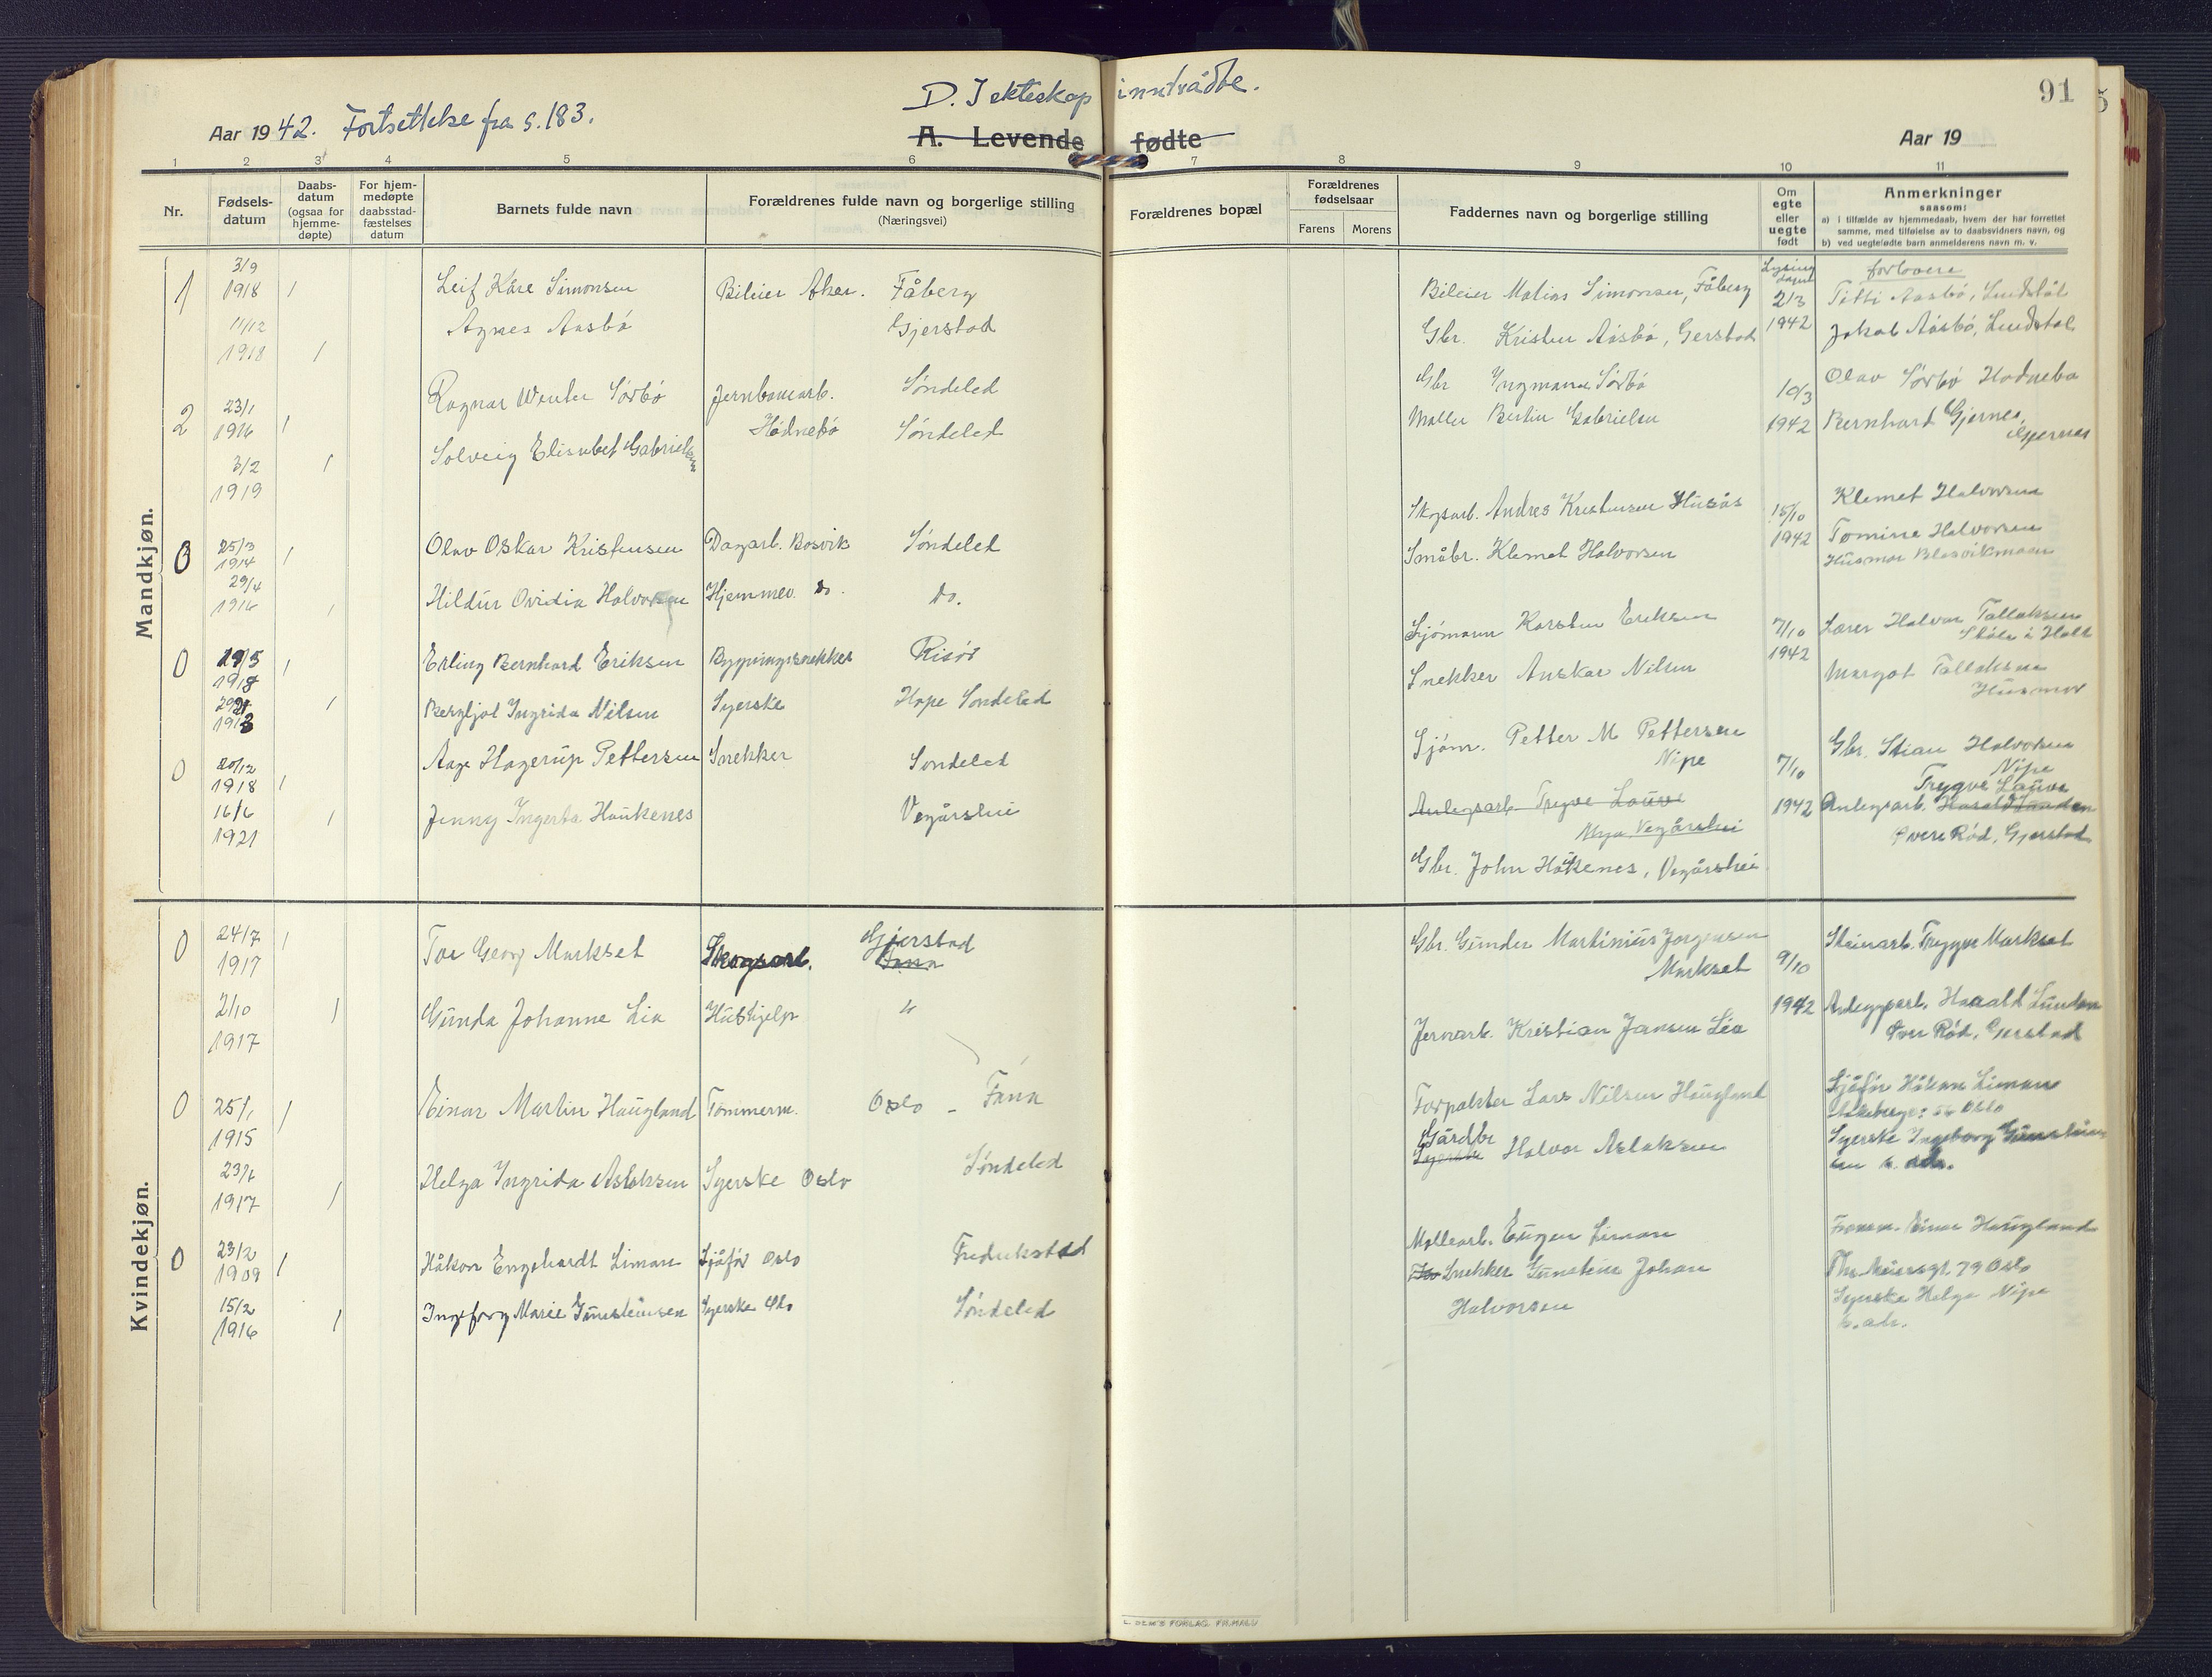 D. I ekteskap inntrådte.
91
Aar 1942. Fortsettelse fra s. 183.
A. Levende fødte
Aar 19
1 2 3 4 5 6 7 8 9 10 11
Nr.
Fødsels-datum
Daabs-datum (ogsaa for hjemme-døpte)
For hjem-medøpte daabsstad-fæstelses datum
Barnets fulde navn
Forældrenes fulde navn og borgerlige stilling
(Næringsvei)
Forældrenes bopæl
Forældrenes fødselsaar
Farens Morens
Faddernes navn og borgerlige stilling
Om egte eller uegte født
Anmerkninger
saasom:
a) i tilfælde av hjemmedaab, hvem der har forrettet samme, med tilføielse av to daabsvidners navn, og
b) ved uegtefødte barn anmelderens navn m. v.
Mandkjøn.
Lysing
forlovere
1 3/9 1918 Leif Kåre Simonsen Bileier Aker. Fåberg Bileier Matias Simonsen, Fåberg 2/3 1942 Titti Aasbø,
11/12 1918 Agnes Aasbø Gjerstad Gbr. Kristen Aasbø, Gerstad Jakob Aasbø,
2 23/1 1916 Ragnar Sørbø Jernbanearb. Hødnebø Søndeled Gbr Sørbø 10/3 1942 Olav Sørbø Hødnebø
3/2 1919 Solveig Elisabet Gabrielsen Søndeled Møller Bertin Gabrielsen Bernhard Gjernes, Gjernes
25/3 1914 Olav Oskar Kristensen Dagarb. Bosvik Søndeled Skogsarb. Andres Kristensen Husås 15/10 1942 Klemet Halvorsen
29/4 1916 Hildur Ovidia Halvorsen Hjemmev. Do. Do. Småbr. Klemet Halvorsen Tomine Halvorsen
0 1918 Erling Bernhard Eriksen Bygningssnekker Risør Sjømann Karsten Eriksen 7/10 1942 Lærer Halvor Tallaksen
Bergljot Ingrida Nilsen Syerske Hope Søndeled Snekker Anskar Nilsen Margot Tallaksen
Husmor
0 20/12 1918 Aage Hagerup Pettersen Snekker Søndeled Sjøm. Petter M Pettersen Nipe 7/10 1942 Gbr. Stian Halvorsen Nipe
16/6 1921 Jenny Ingerta Haukenes Vegårshei Anlegsarb. Trygve Lauve Vegårshei Anlegsarb. Trygve Lauve
Øvere Rød, Gjerstad
Gbr. John Håkenes, Vegårshei
Kvindekjøn.
0 24/7 1917 Tor Georg Markset Skogsarb. Gjerstad Gbr. Gunder Martinius Jørgensen Markset 9/10 1942 Steinarb. Trygve Markset
2/10 1917 Gunda Johanne Lia Hushjelp " Jernarb. Kristian Jansen Lia Harald Lunden
Øvre Rød, Gjerstad
0 25/1 1915 Einar Martin Haugland Tømmerm. Oslo - Fana Forpakter Lars Nilsen Haugland Sjåfør Håkon Liman
Oslo
23/6 1917 Helga Ingrida Aslaksen Syerske Oslo Søndeled Gårdbr Halvor Aslaksen Syerske Ingeborg Gunsteinsen s. adr.
0 23/2 1909 Håkon Engehardt Liman Sjåfør Oslo Fredrikstad Møllearb. Eugen Liman Tømm. Einar Haugland
15/2 1916 Ingeborg Marie Gunsteinsen Syerske Oslo Søndeled Snekker Gunstein Johan Halvorsen 79 Oslo
Syerske Helga Nipe
s. adr.